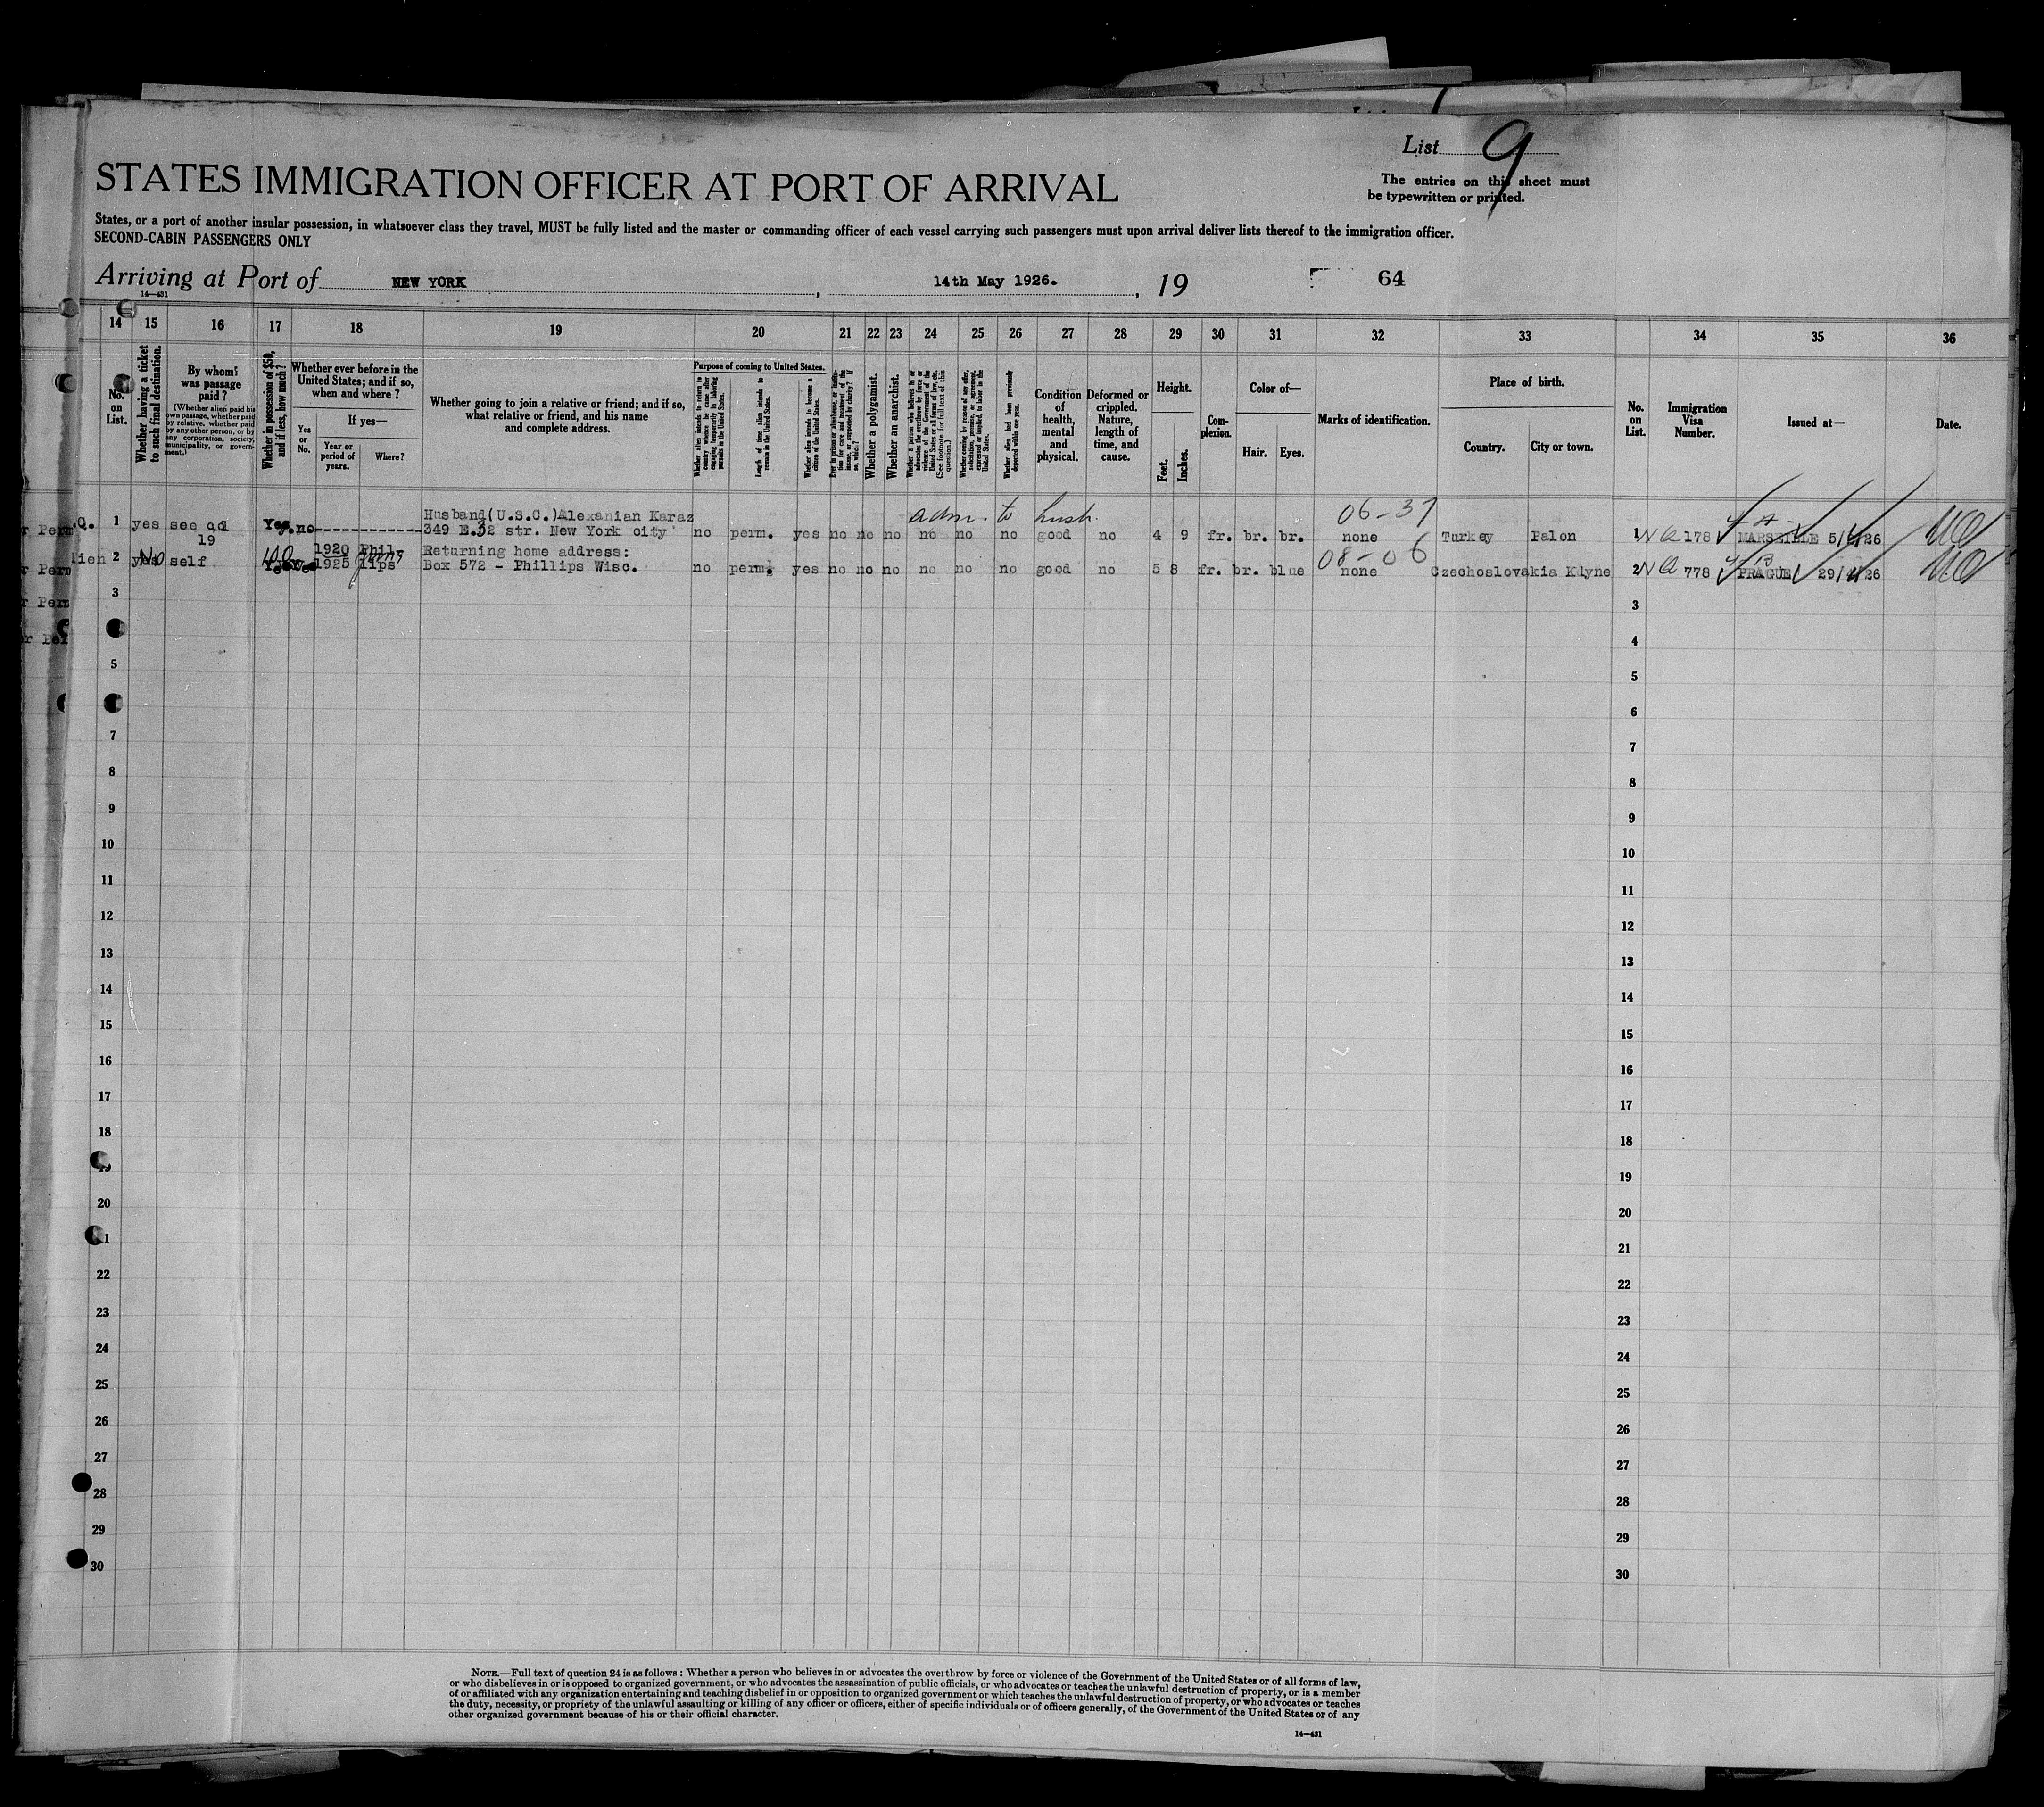 List 9
The entries on this sheet must
be typewritten or printed.
STATES IMMIGRATION OFFICER AT PORT OF ARRIVAL
States, or a port of another insular possession, in whatsoever class they travel, MUST be fully listed and the master or commanding officer of each vessel carrying such passengers must upon arrival deliver lists thereof to the immigration officer.
SECOND-CABIN PASSENGERS ONLY
Arriving at Port of NEW YORK, 14th May 1926., 19 64
14—431
14 15 16 17 18 19 20 21 22 23 24 25 26 27 28 29 30 31 32 33 34 35 36
No. on List.
Whether having a ticket to such final destination.
By whom was passage paid?
(Whether alien paid his own passage, whether paid by relative, whether paid by any other person, or by any corporation, society, municipality, or government.)
Whether in possession of $50, and if less, how much?
Whether ever before in the United States; and if so, when and where?
Yes or No.
If yes—
Year or period of years.
Where?
Whether going to join a relative or friend; and if so, what relative or friend, and his name and complete address.
Purpose of coming to United States.
Whether alien intends to return to country whence he came after engaging temporarily in laboring pursuits in the United States.
Length of time alien intends to remain in the United States.
Whether alien intends to become a citizen of the United States.
Ever in prison or almshouse, or institution for care and treatment of the insane, or supported by charity? If so, which?
Whether a polygamist.
Whether an anarchist.
Whether a person who believes in or advocates the overthrow by force or violence of the Government of the United States or all forms of law, etc. (See footnote for full text of this question.)
Whether coming by reason of any offer, solicitation, promise, or agreement, expressed or implied, to labor in the United States.
Whether alien had been previously deported within one year.
Condition of health, mental and physical.
Deformed or crippled. Nature, length of time, and cause.
Height.
Feet.
Inches.
Complexion.
Color of—
Hair.
Eyes.
Marks of identification.
Place of birth.
Country.
City or town.
No. on List.
Immigration Visa Number.
Issued at—
Date.
adm. to husb. 06-37
Husband(U.S.C.)Alexanian Karaz
1 yes see col 19 Yes. no 349 E.32 str. New York city no perm. yes no no no no no no good no 4 9 fr. br. br. none Turkey Palon 1 NQ 178 MARSEILLE 5/4/26
08-06
1920 Phil- Returning home address:
2 No self 100 Yes 1925 lips Box 572 - Phillips Wisc. no perm. yes no no no no no no good no 5 8 fr. br. blue none Czechoslovakia Kdyne 2 NQ 778 PRAGUE 29/4/26
3 3
4
5 5
6
7 7
8 8
9 9
10 10
11 11
12 12
13 13
14 14
15 15
16 16
17 17
18 18
19 19
20 20
21 21
22 22
23 23
24 24
25 25
26 26
27 27
28 28
29 29
30 30
NOTE.—Full text of question 24 is as follows: Whether a person who believes in or advocates the overthrow by force or violence of the Government of the United States or of all forms of law,
or who disbelieves in or is opposed to organized government, or who advocates the assassination of public officials, or who advocates or teaches the unlawful destruction of property, or is a member
of or affiliated with any organization entertaining and teaching disbelief in or opposition to organized government or which teaches the unlawful destruction of property, or who advocates or teaches
the duty, necessity, or propriety of the unlawful assaulting or killing of any officer or officers, either of specific individuals or of officers generally, of the Government of the United States or of any
other organized government because of his or their official character.
14—431